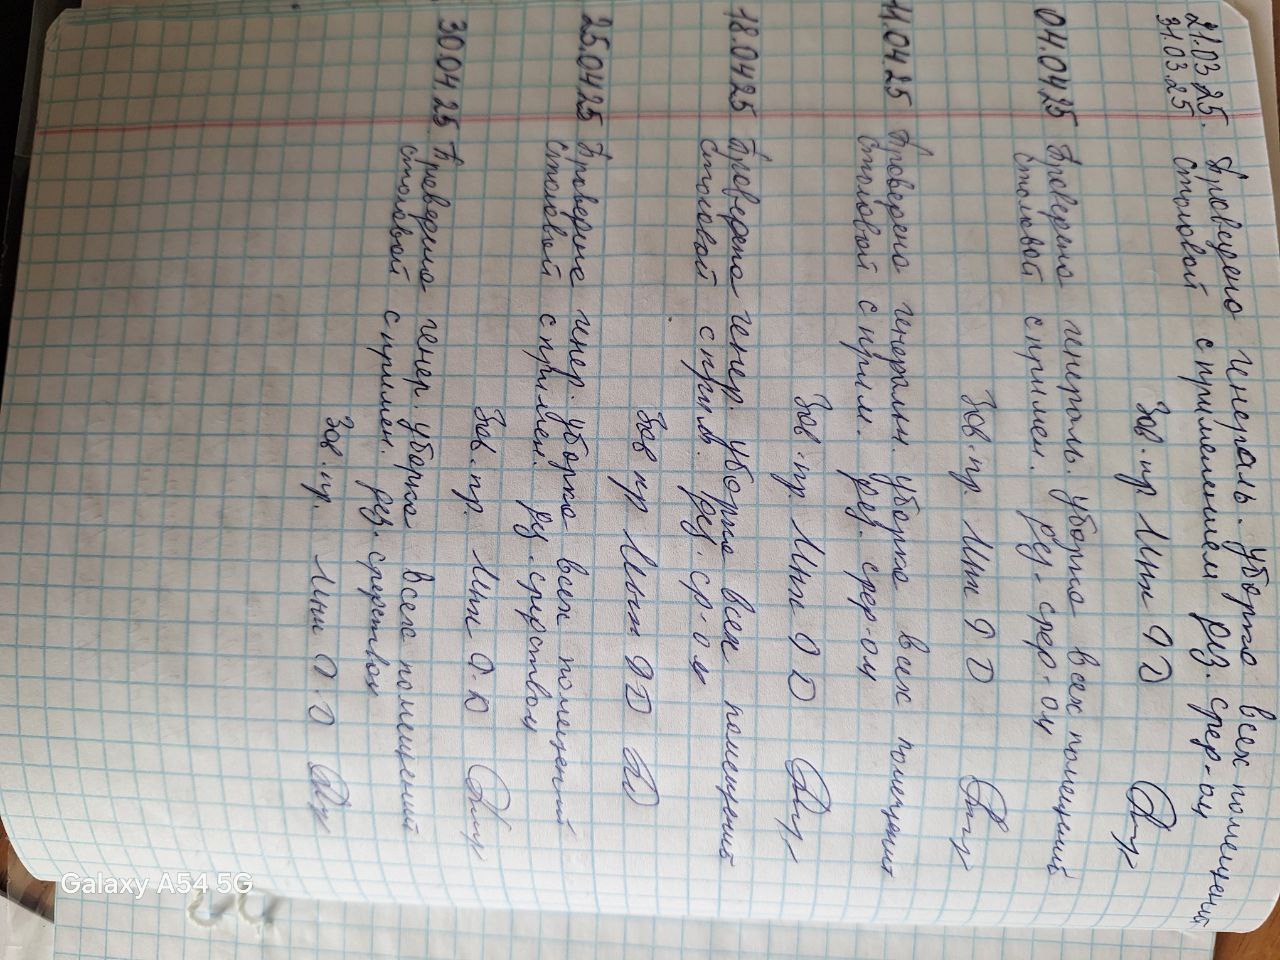 21.03.25. Проведено генераль. уборка всех помещений
31.03.25 столовой с применением дез. сред-ом
Зав. пр. Инн
04.04.25 Проведено генераль. уборка всех помещений
столовой с примен. дез. сред-ом
Зав. пр. Инн
11.04.25 Проведено генеральн. уборка всех помещений
столовой с прим. дез. сред-ом
Зав. пр. Инн
18.04.25 Проведена генер. уборка всех помещений
столовой с прим. дез. ср-ом
Зав пр
25.04.25 Проведена генер. уборка всех помещений
столовой с примен. дез. средством
Зав. пр. Инн
30.04.25 Проведена генер. уборка всех помещений
столовой с примен. дез. средством
Зав. пр. Инн
Galaxy A54 5G